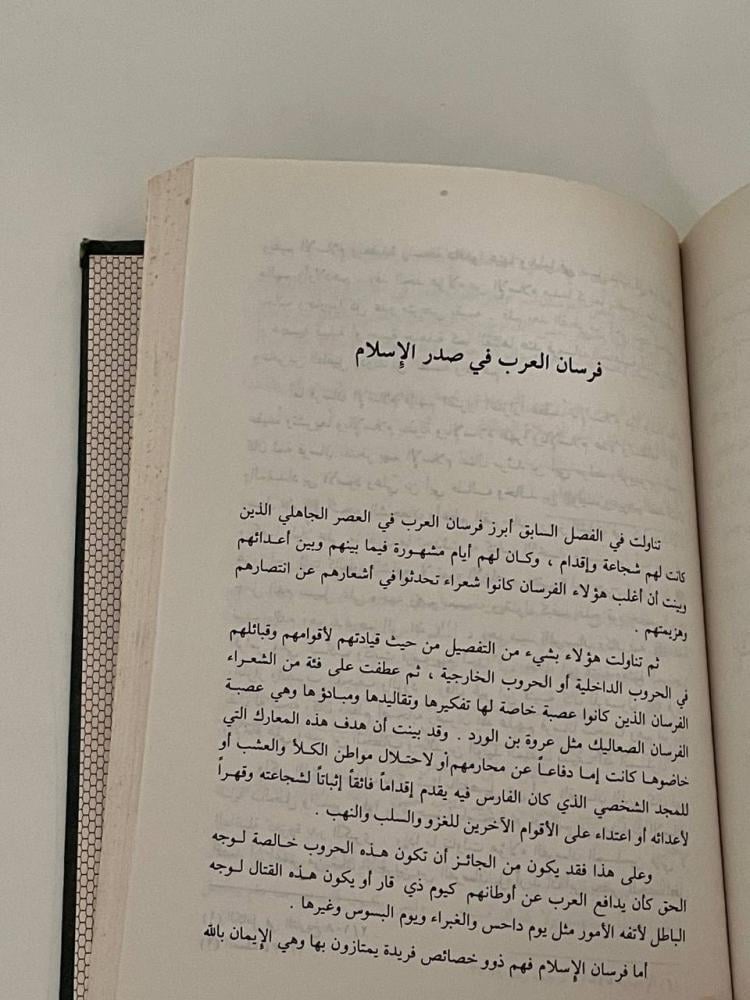 فرسان العرب في صدر الإسلام
تناولت في الفصل السابق أبرز فرسان العرب في العصر الجاهلي الذين
كانت لهم شجاعة وإقدام ، وكـان لهم أيام مشهـورة فيما بينهم وبين أعـدائهم
وبينت أن أغلب هؤلاء الفرسان كانوا شعراء تحدثوا في أشعارهم عن انتصارهم
وهزيمتهم .
ثم تناولت هؤلاء بشيء من التفصيل من حيث قيادتهم لأقوامهم وقبائلهم
في الحروب الداخلية أو الحروب الخارجية ، ثم عطفت على فئة من الشعـراء
الفرسان الذين كانوا عصبة خاصة لها تفكيرها وتقاليدها ومبـادؤ ها وهي عصبـة
الفرسان الصعاليك مثل عروة بن الورد . وقد بينت أن هدف هذه المعارك التي
خاضوهـا كانت إمـا دفاعـاً عن محارمهم أو لاحتـلال مواطن الكـلأ والعشب أو
للمجد الشخصي الذي كان الفارس فيه يقدم إقداماً فائقاً إثباتاً لشجاعته وقهـراً
لأعدائه أو اعتداء على الأقوام الآخرين للغزو والسلب والنهب .
وعلى هذا فقد يكون من الجائـز أن تكون هـذه الحروب خـالصة لـوجه
الحق كأن يدافع العرب عن أوطانهم كيوم ذي قار أو يكون هـذه القتال لـوجه
الباطل لأتفه الأمور مثل يوم داحس والغبراء ويوم البسوس وغيرها .
أما فرسان الإسلام فهم ذوو خصائص فريدة يمتازون بها وهي الإيمان بالله